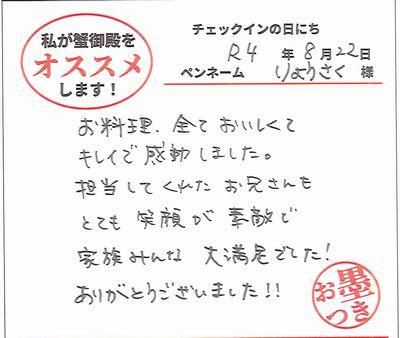 私が蟹御殿を
オススメ
します！
チェックインの日にち
R4 年 8 月 22 日
ペンネーム りょうさく 様
お料理、全ておいしくて
キレイで感動しました。
担当してくれたお兄さんも
とても笑顔が素敵で
家族みんな大満足でした!
ありがとうございました!!
お墨つき